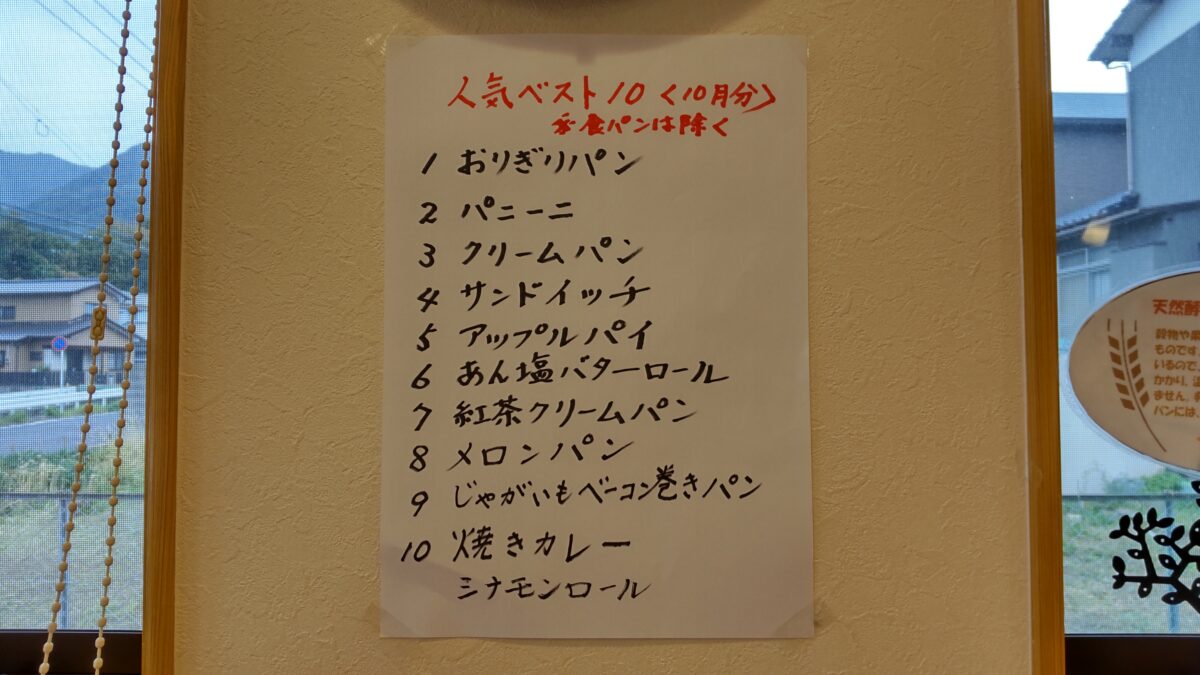 人気ベスト10〈10月分〉
※食パンは除く
1 おりぎりパン
2 パニーニ
3 クリームパン
4 サンドイッチ
5 アップルパイ
6 あん塩バターロール
7 紅茶クリームパン
8 メロンパン
9 じゃがいもベーコン巻きパン
10 焼きカレー
シナモンロール
天然酵
穀物や果
ものです
いるので、
かかり、
ません。
パンには、